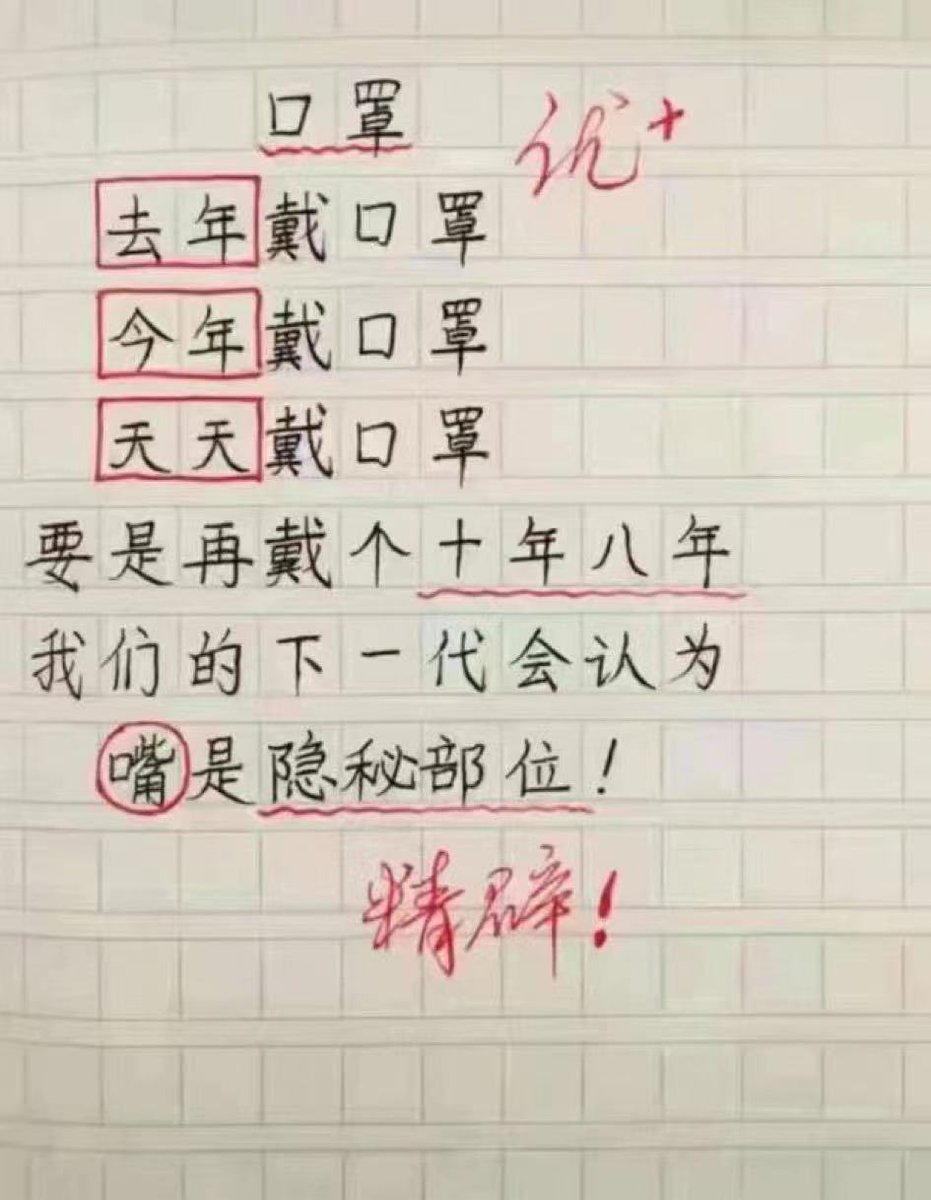 口罩
优+
去年戴口罩
今年戴口罩
天天戴口罩
要是再戴个十年八年
我们的下一代会认为
嘴是隐秘部位！
精辟！